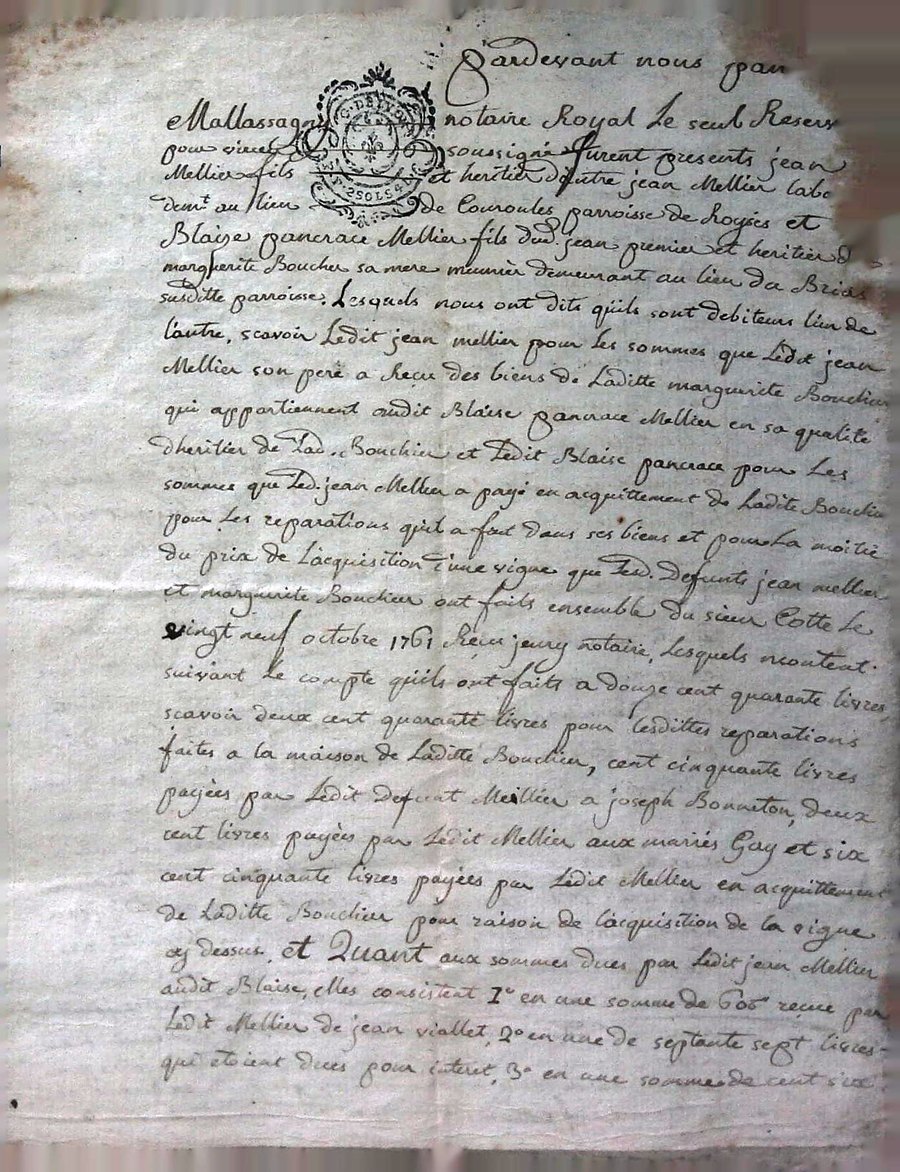 Pardevant nous pan
Mallassagny notaire Royal Le seul Reserv
pour vivre soussigné furent presents jean
Mellier fils et heritier dautre jean Mellier labo
demt au lieu de Couroules parroisse de Royses et
Blaise pancrace Mellier fils dud. jean premier et heritier d
marguerite Boucher sa mere meunier demeurant au lieu du Brias
susditte parroisse. Lesquels nous ont dits quils sont debiteurs l'un de
l'autre, scavoir Ledit jean mellier pour Les sommes que Ledit jean
Mellier son pere a Recu des biens de Laditte marguerite Bouchier
qui appartiennent audit Blaise pancrace Mellier en sa qualité
dheritier de Lad. Bouchier et Ledit Blaise pancrace pour Les
sommes que Led. jean Mellier a payé en acquittement de Ladite Bouchier
pour Les reparations quil a fait dans ses biens et pour La moitié
du prix de Lacquisition d'une vigne que Lesd. Defunts jean mellier
et marguerite Bouchier ont faits ensemble du sieur Cotte Le
vingt neuf octobre 1761 Recu jeury notaire, Lesquels montent
suivant Le compte quils ont faits a douze cent quarante livres,
scavoir deux cent quarante livres pour lesdittes reparations
faites a la maison de Laditte Bouchier, cent cinquante livres
payées par Ledit Defunt Mellier a joseph Bonneton, deux
cent livres payées par Ledit Mellier aux mariés Gay et six
cent cinquante livres payées par Ledit Mellier en acquittement
de Laditte Bouchier pour raison de l'acquisition de la vigne
cy dessus, et Quant aux sommes dues par Ledit jean Mellier
audit Blaise, elles consistent 1º en une somme de 606# recue par
Ledit Mellier de jean viallet, 2º en une de septante sept livres
qui etoient dues pour interet, 3º en une somme de cent six